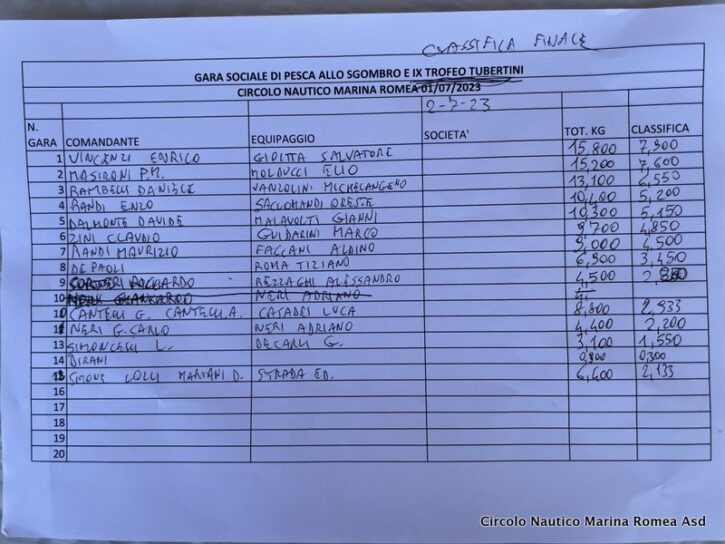 CLASSIFICA FINALE
GARA SOCIALE DI PESCA ALLO SGOMBRO E IX TROFEO TUBERTINI
CIRCOLO NAUTICO MARINA ROMEA 01/07/2023
2-7-23
N. GARA COMANDANTE EQUIPAGGIO SOCIETA' TOT. KG CLASSIFICA
1 VINCENZI ENRICO GIOITTA SALVATORE 15,800 7,900
2 MASIRONI P.M. MOLDUCCI ELIO 15,200 7,600
3 RAMBELLI DANIELE VANZOLINI MICHELANGELO 13,100 6,550
4 RANDI ENZO ORESTE 10,400 5,200
5 DALMONTE DAVIDE MALAVOLTI GIANNI 10,300 5,150
6 ZINI CLAUDIO GUIDARINI MARCO 9,700 4,850
7 RANDI MAURIZIO FACCANI ALDINO 9,000 4,500
8 DE PAOLI ROMA TIZIANO 6,900 3,450
9 REZZAGHI ALESSANDRO 4,500
10 NERI ADRIANO
CANTELLI G. CANTELLI A. CASADEI LUCA 8,800 2,933
NERI G. CARLO NERI ADRIANO 4,400 2,200
13 SIMONCELLI L. DECARLI G. 3,100 1,550
14 DIRANI 0,300
SIMONE LOLLI MARIANI D. STRADA ED. 6,400 2,133
16
17
18
19
20
Circolo Nautico Marina Romea Asd